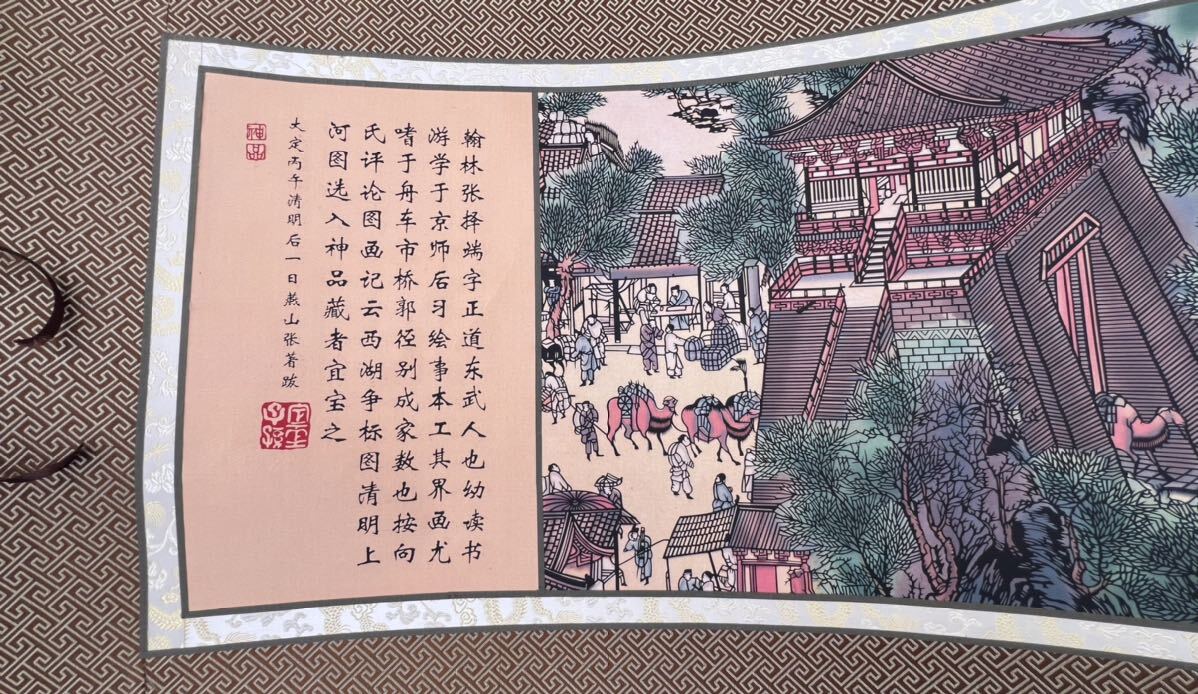 翰林张择端字正道东武人也幼读书
游学于京师后习绘事本工其界画尤
嗜于舟车市桥郭径别成家数也按向
氏评论图画记云西湖争标图清明上
河图选入神品藏者宜宝之
大定丙午清明后一日燕山张著跋
神品